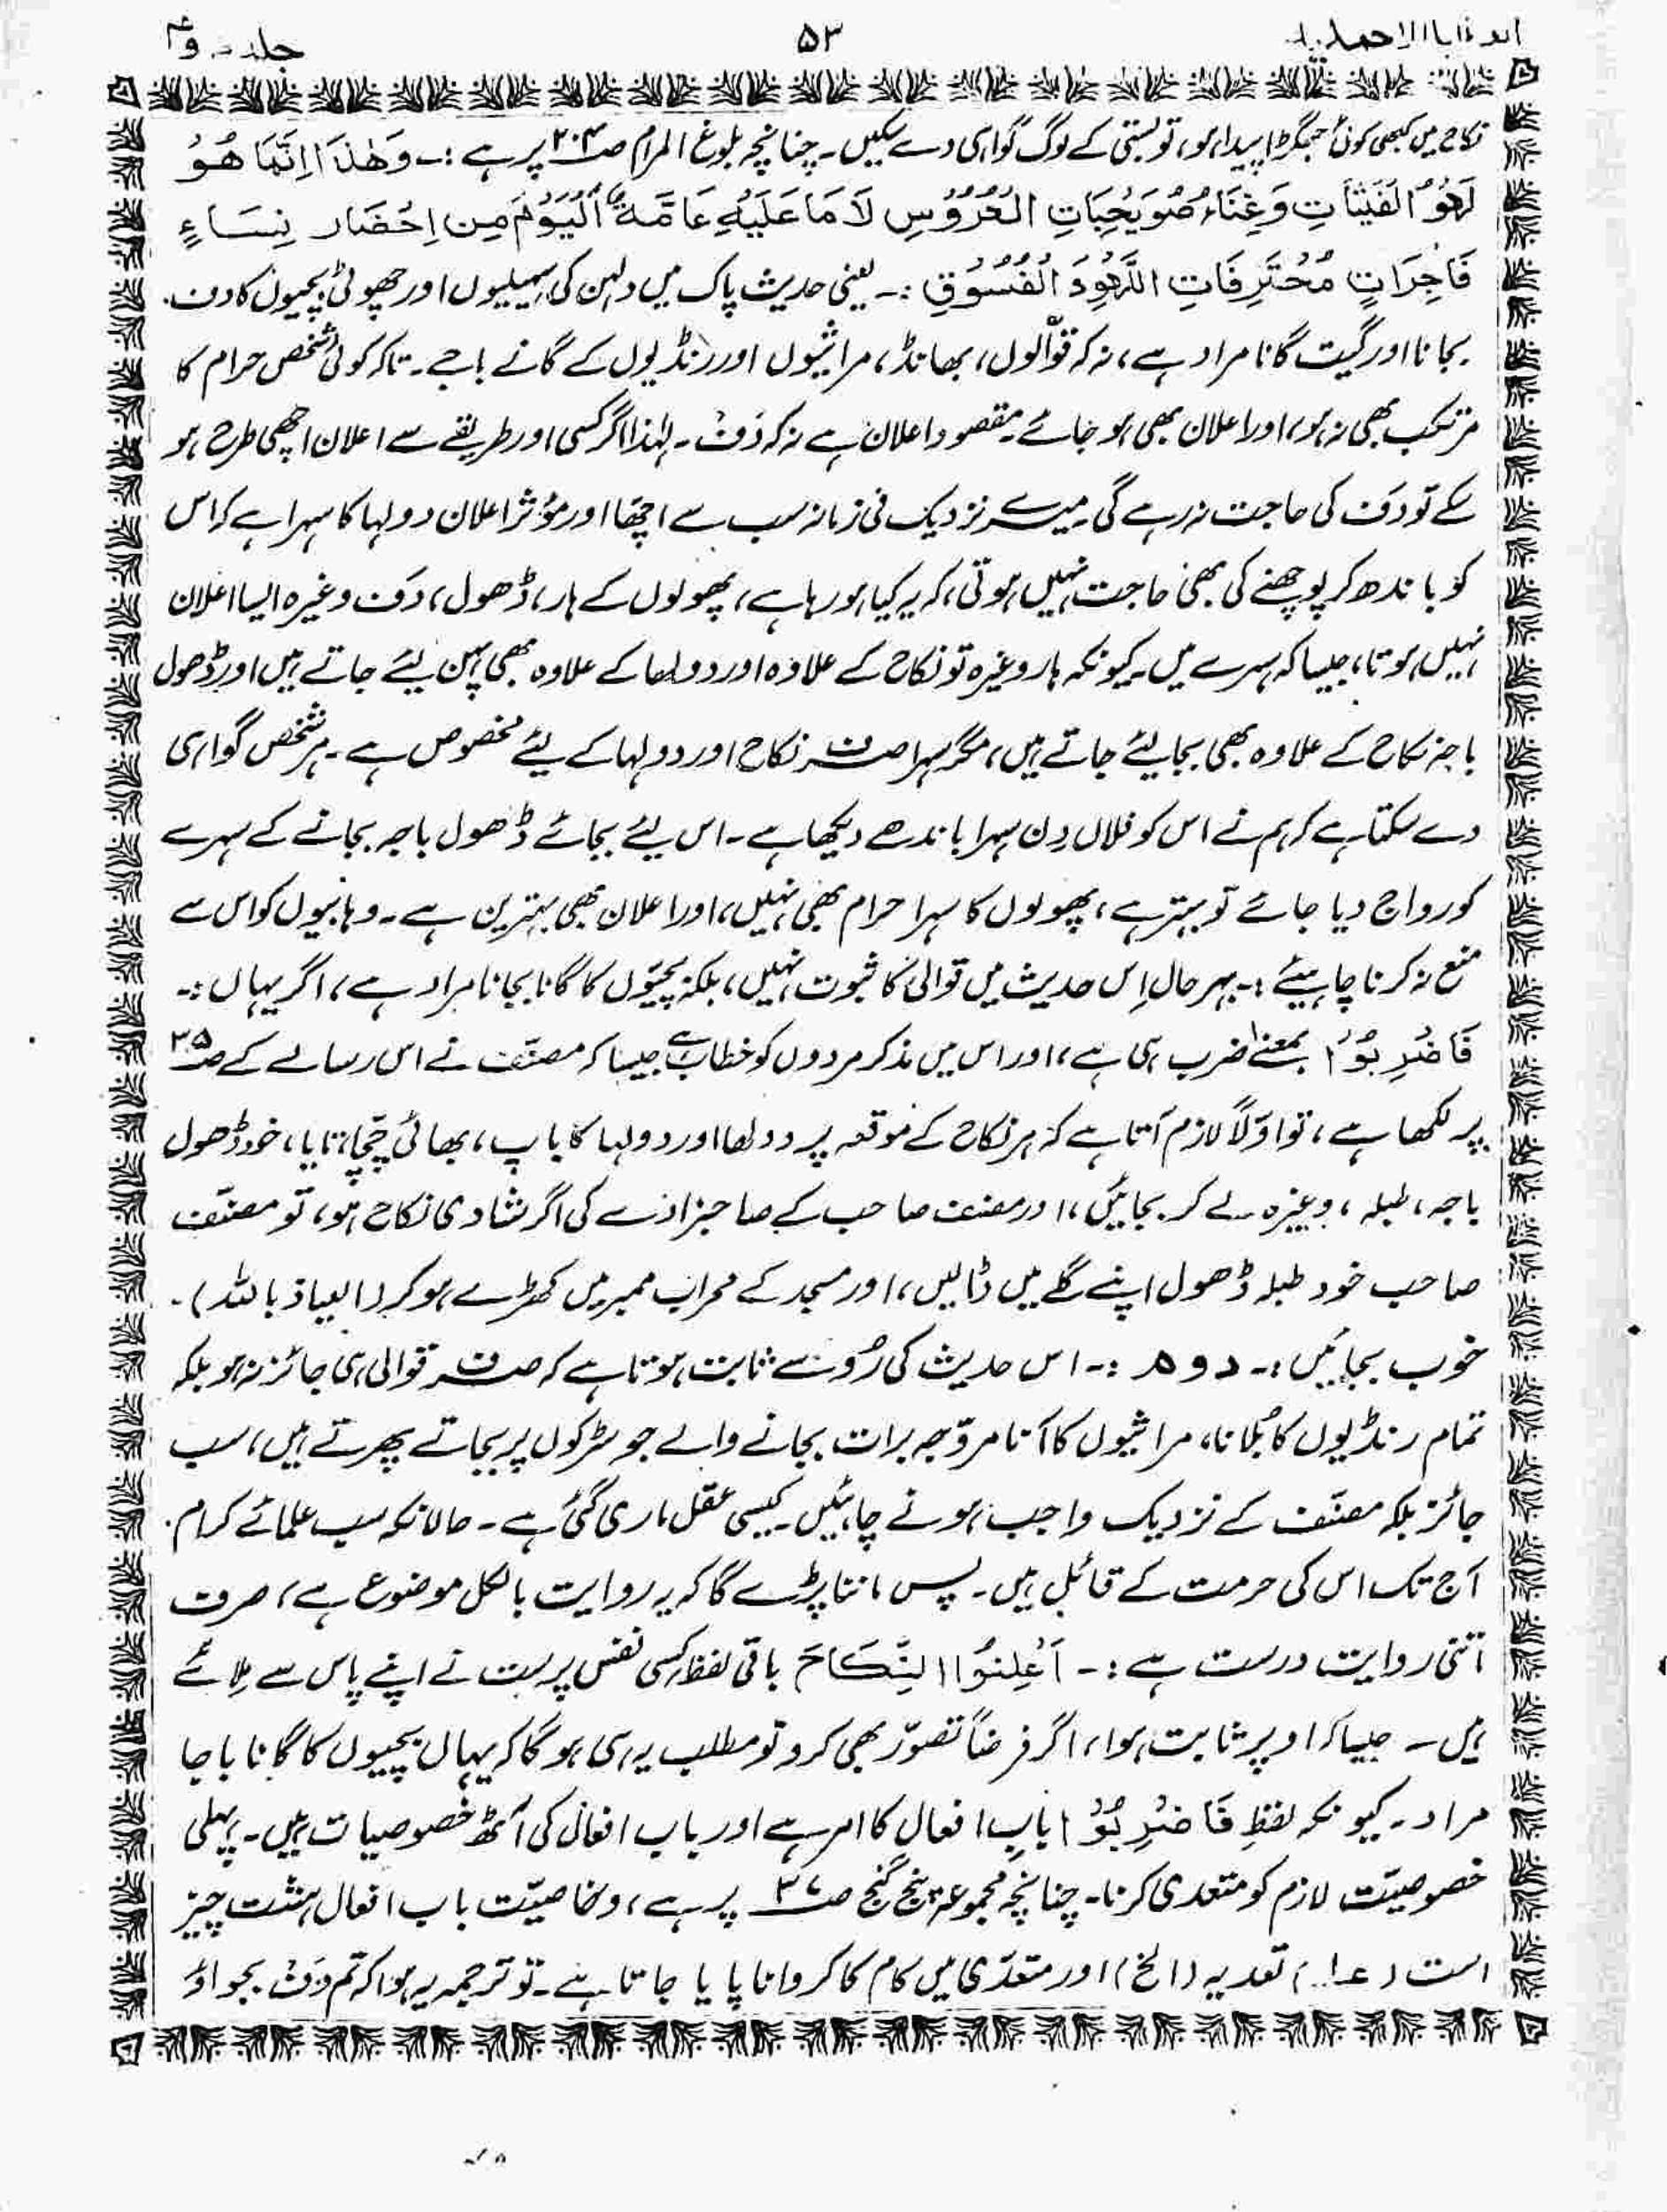 ۵۳
جلد دوم
نکاح میں کبھی کوئی جھگڑا پیدا ہو، تو بستی کے لوگ گواہی دے سکیں۔ چنانچہ بلوغ المرام صـ۲۰۴ پر ہے :۔ وَھٰذَا اِنَّمَا ھُوَ
لَھْوُ الْفَتَیَاتِ وَغِنَاءُ صُوَیْحِبَاتِ الْعُرُوْسِ لَا مَا عَلَیْہِ عَامَّۃُ الْیَوْمَ مِن اِحْضَارِ نِسَاءٍ
فَاجِرَاتٍ مُحْتَرِفَاتِ اللَّھْوِ وَ الْفُسُوْقِ :۔ یعنی حدیث پاک میں دلہن کی سہیلیوں اور چھوٹی بچیوں کا دف
بجانا اور گیت گانا مراد ہے، نہ کہ قوّالوں، بھانڈ، مراثیوں اور رنڈیوں کے گانے باجے۔ تاکہ کوئی شخص حرام کا
مرتکب بھی نہ ہو، اور اعلان بھی ہو جائے۔ مقصود اعلان ہے نہ کہ دَف۔ لہٰذا اگر کسی اور طریقے سے اعلان اچھی طرح ہو
سکے تو دَف کی حاجت نہ رہے گی۔ میرے نزدیک فی زمانہ سب سے اچھا اور مؤثر اعلان دولہا کا سہرا ہے کہ اس
کو باندھ کر پوچھنے کی بھی حاجت نہیں ہوتی، کہ یہ کیا ہو رہا ہے، پھولوں کے ہار، ڈھول، دَف وغیرہ ایسا اعلان
نہیں ہوتا، جیسا کہ سہرے میں۔ کیونکہ ہار وغیرہ تو نکاح کے علاوہ اور دولھا کے علاوہ بھی پہن لیئے جاتے ہیں اور ڈھول
باجہ نکاح کے علاوہ بھی بجا لیئے جاتے ہیں، مگر سہرا صرف نکاح اور دولہا کے لیئے مخصوص ہے۔ ہر شخص گواہی
دے سکتا ہے کہ ہم نے اس کو فلاں دِن سہرا باندھے دیکھا ہے۔ اس لیئے بجائے ڈھول باجہ بجانے کے سہرے
کو رواج دیا جائے تو بہتر ہے، پھولوں کا سہرا حرام بھی نہیں، اور اعلان بھی بہترین ہے۔ وہابیوں کو اس سے
منع نہ کرنا چاہیئے :۔ بہرحال اِس حدیث میں قوالی کا ثبوت نہیں، بلکہ بچیّوں کا گانا بجانا مراد ہے، اگر یہاں :۔
فَاضْرِبُوْا بمعنےٰ ضرب ہی ہے، اور اس میں مذکر مردوں کو خطاب ہے جیسا کہ مصنّف نے اس رسالے کے صـ۳۵
پر لکھا ہے، تو اوّلاً لازم آتا ہے کہ ہر نکاح کے موقعہ پر دولھا اور دولہا کا باپ، بھائی چچا، تایا، خود ڈھول
باجہ، طبلہ، وغیرہ لے کر بجائیں، اور مصنف صاحب کے صاحبزادے کی اگر شادی نکاح ہو، تو مصنّف
صاحب خود طبلہ ڈھول اپنے گلے میں ڈالیں، اور مسجد کے محراب ممبر میں کھڑے ہو کر (العیاذ باللہ)۔
خوب بجائیں :۔ دوم :۔ اس حدیث کی رُو سے ثابت ہوتا ہے کہ صرف قوالی ہی جائز نہ ہو بلکہ
تمام رنڈیوں کا بُلانا، مراثیوں کا آنا مروّجہ برات بجانے والے جو سڑکوں پر بجاتے پھرتے ہیں، سب
جائز بلکہ مصنّف کے نزدیک واجب ہونے چاہئیں۔ کیسی عقل ماری گئی ہے۔ حالانکہ سب علمائے کرام
آج تک اس کی حرمت کے قائل ہیں۔ پس ماننا پڑے گا کہ یہ روایت بالکل موضوع ہے، صرف
اتنی روایت درست ہے :۔ اَعْلِنُوْا النِّکَاحَ باقی لفظ کسی نفس پرست نے اپنے پاس سے مِلائے
ہیں۔ جیسا کہ اوپر ثابت ہوا، اگر فرضاً تصوّر بھی کرو تو مطلب یہ ہی ہو گا کہ یہاں بچیوں کا گانا باجا
مراد۔ کیونکہ لفظِ فَاضْرِبُوْا بابِ افعال کا امر ہے اور باب افعال کی آٹھ خصوصیات ہیں۔ پہلی
خصوصیّت لازم کو متعدی کرنا۔ چنانچہ مجموعہ پنج گنج صـ۳۷ پر ہے، و خاصیّت باب افعال ہشت چیز
است (عـ۱) تعدیہ (الخ) اور متعدّی میں کام کا کروانا پایا جاتا ہے۔ تو ترجمہ یہ ہوا کہ تم دَف بجواؤ